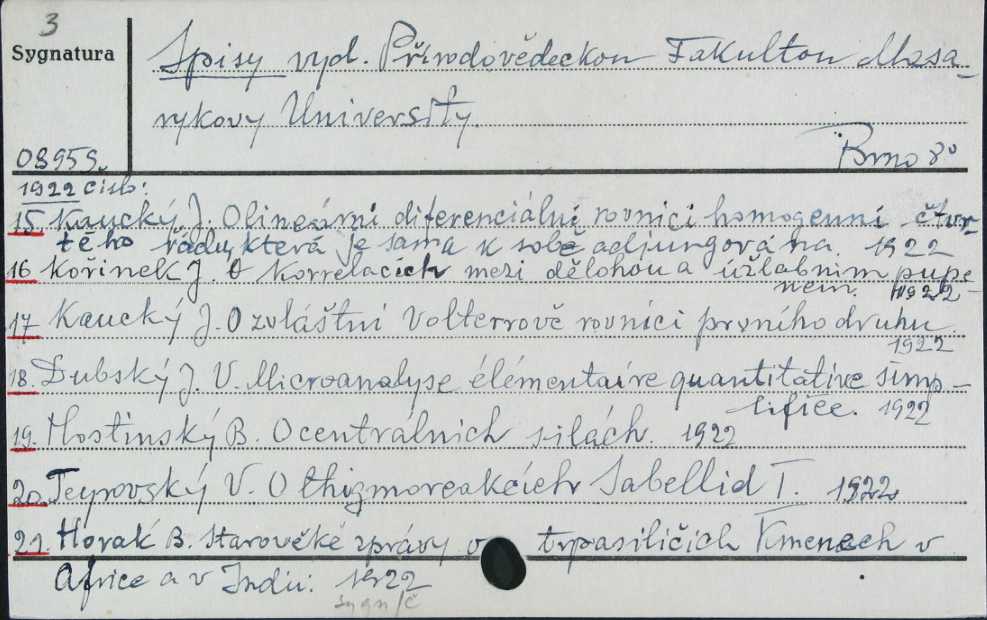 3
Sygnatura
Spisy vyd. Přírodovědeckou Fakultou Masa-
rykovy University.
Brno 8°
08959.
1922 čisb:
15. Kaucký J. O lineární diferenciální rovnici homogenní čtvr-
tého řádu, která je sama k sobě adjungována. 1922
16 Kořinek J. O Korrelacích mezi dělohou a úžlabním pupe-
nem. 1922
17 Kaucký J. O zvláštní Volterrově rovnici prvního druhu.
1922
18. Dubský J. V. Microanalyse élémentaire quantitative simp-
lifiée. 1922
19. Hostinský B. O centrálních silách. 1922
20. Teyrovský V. O thigmoreakcích Sabellid I. 1922
21. Horák B. Starověké zprávy o trpasličích Kmenech v
Africe a v Indii: 1922
sygn/č